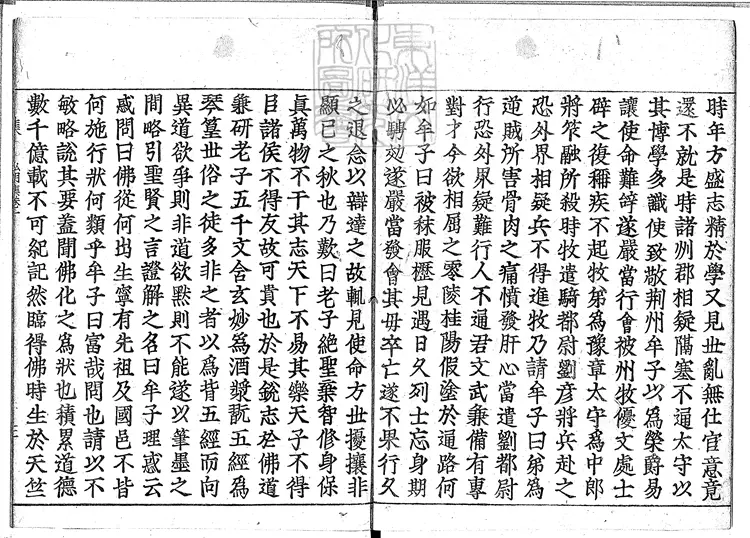 時年方盛志精於學又見世亂無仕官意竟
還不就是時諸州郡相疑隔塞不通太守以
其博學多識使致敬荊州牟子以為榮爵易
讓使命難辭遂嚴當行會被州牧優文處士
辟之復稱疾不起牧弟為豫章太守為中郎
將笮融所殺時牧遣騎都尉劉彥將兵赴之
恐外界相疑兵不得進牧乃請牟子曰弟為
逆賊所害骨肉之痛憤發肝心當遣劉都尉
行恐外界疑難行人不通君文武兼備有專
對才今欲相屈之零陵桂陽假塗於通路何
如牟子曰被秣服櫪見遇日久列士忘身期
必騁効遂嚴當發會其母卒亡遂不果行久
之退念以辯達之故輒見使命方世擾攘非
顯己之秋也乃歎曰老子絕聖棄智修身保
真萬物不干其志天下不易其樂天子不得
臣諸侯不得友故可貴也於是銳志於佛道
兼研老子五千文含玄妙為酒漿翫五經為
琴簧世俗之徒多非之者以為背五經而向
異道欲爭則非道欲默則不能遂以筆墨之
間略引聖賢之言證解之名曰牟子理惑云
或問曰佛從何出生寧有先祖及國邑不皆
何施行狀何類乎牟子曰富哉問也請以不
敏略說其要蓋聞佛化之為狀也積累道德
數千億載不可紀記然臨得佛時生於天竺